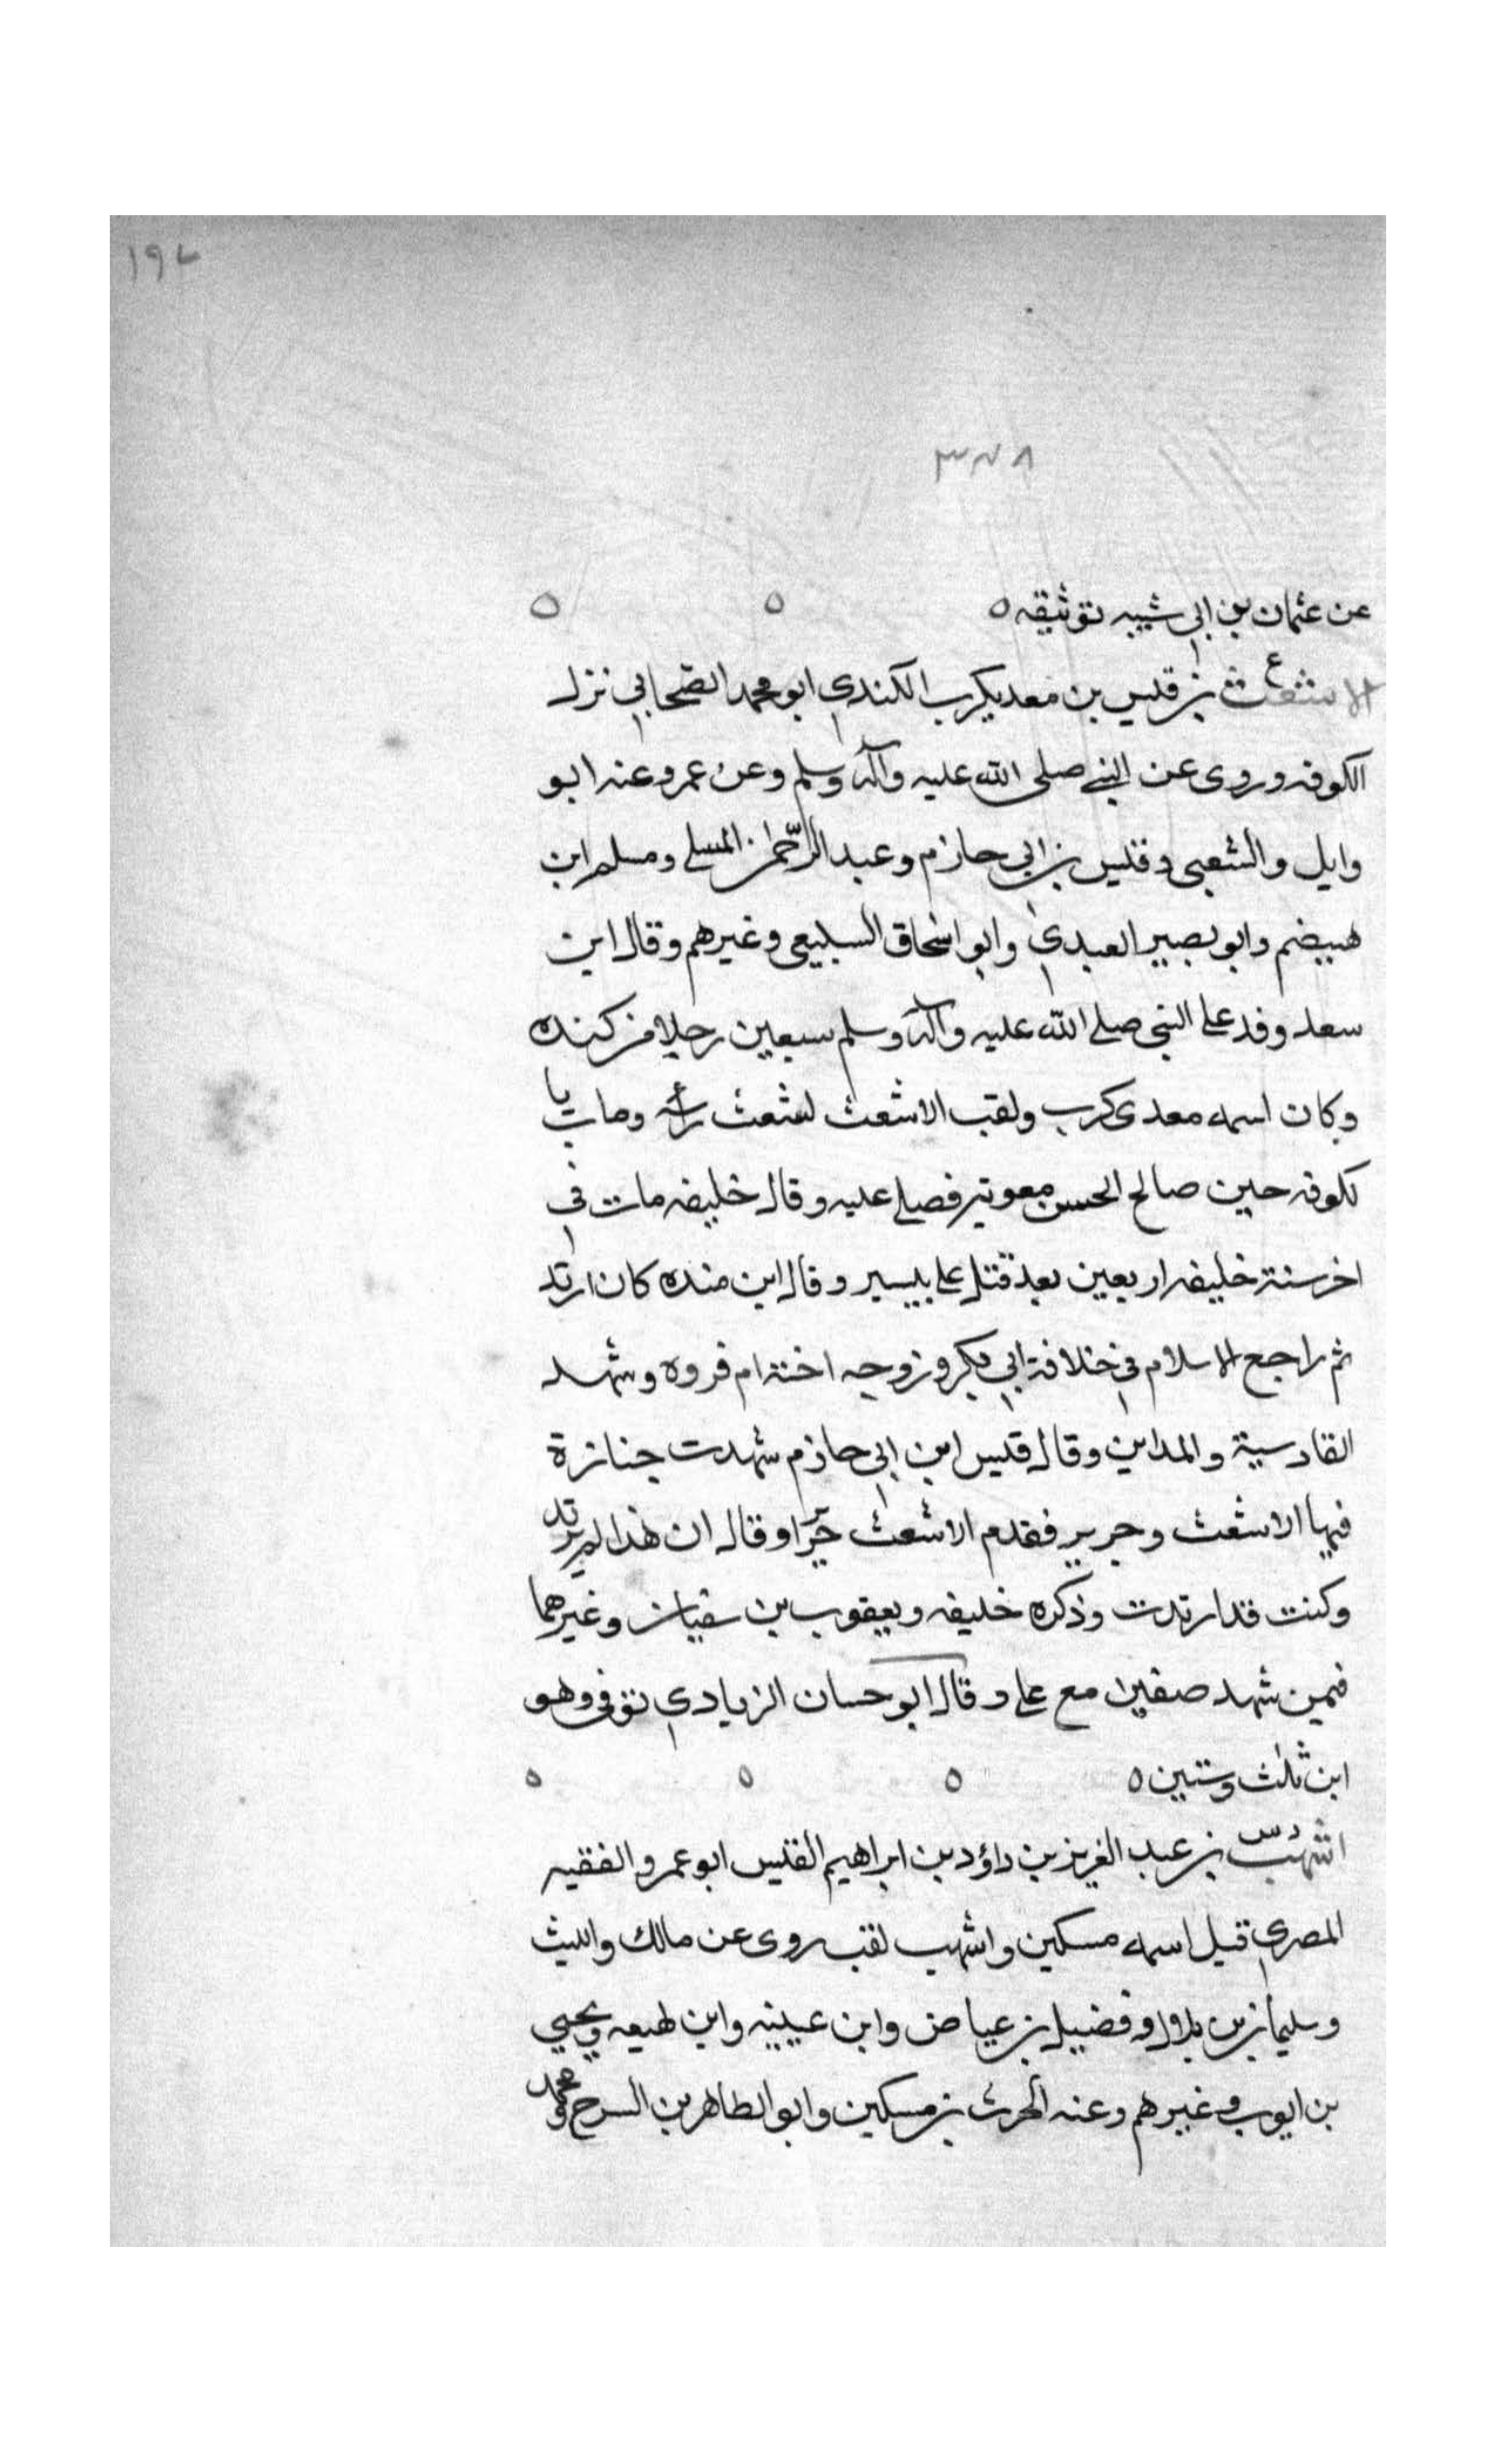 ١٩٧
٣٧٨
عن عثمان بن ابي شيبه توثيقه ه ه ه
الاشعث ع بن قيس بن معديكرب الكندي ابو محمد الصحابي نزل
الكوفه وروى عن النبي صلى الله عليه وآله وسلم وعن عمر وعنه ابو
وايل والشعبى وقيس بن ابي حازم وعبد الرحمن المسلي ومسلم ابن
هيضم وابو بصير العبدي وابو اسحاق السبيعي وغيرهم وقال ابن
سعد وفد على النبي صلى الله عليه وآله وسلم سبعين رجلا من كنده
وكان اسمه معدى كرب ولقب الاشعث لشعث رأسه ومات با
لكوفه حين صالح الحسن معوية فصلى عليه وقال خليفه مات في
اخر سنة خليفه اربعين بعد قتل على بيسير وقال ابن منده كان ارتد
ثم راجع الاسلام في خلافة ابي بكر وزوجه اخته ام فروه وشهد
القادسية والمداين وقال قيس ابن ابي حازم شهدت جنازة
فيها الاشعث وجرير فقدم الاشعث جريرا وقال ان هذا لم يرتد
وكنت قد ارتدت وذكره خليفه ويعقوب بن سفيان وغيرهما
فيمن شهد صفين مع على وقال ابو حسان الزيادي توفى وهو
ابن ثلث وستين ه ه ه ه
اشهب د س بن عبد العزيز بن داؤد بن ابراهيم القيس ابو عمرو الفقيه
المصري قيل اسمه مسكين واشهب لقب روى عن مالك والليث
وسليمان بن بلال وفضيل بن عياض وابن عيينه وابن لهيعه ويحيي
بن ايوب وغيرهم وعنه الحرث بن مسكين وابو الطاهر بن السرح ومحمد